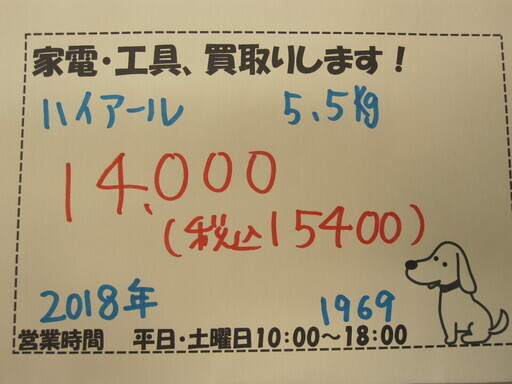 家電・工具、買取りします！
ハイアール 5.5kg
14,000
(税込15400)
2018年 1969
営業時間 平日・土曜日10:00～18:00